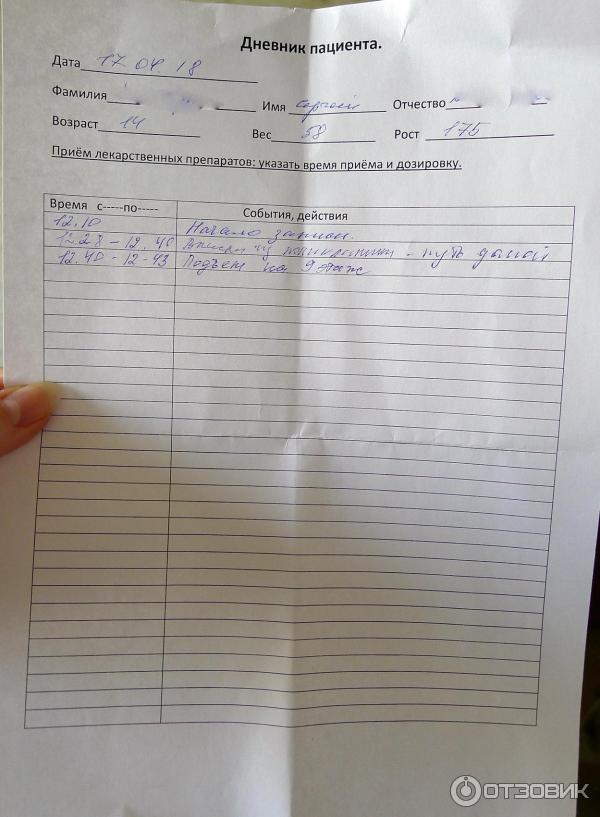 Дневник пациента.
Дата 17.04.18
Фамилия Имя Сергей Отчество
Возраст 14 Вес 58 Рост 175
Приём лекарственных препаратов: указать время приёма и дозировку.
Время с-----по----- События, действия
12.10 Начало записи.
12.28 - 12.40 из поликлиники - путь домой
12.40 - 12-43 Подъем на 9 этаж
ОТЗОВИК